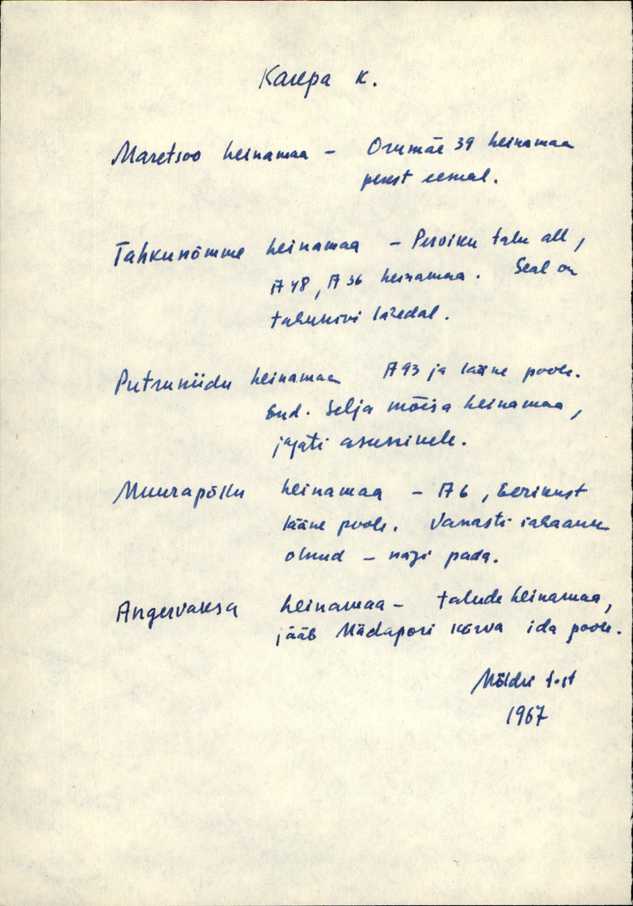 Karepa k.
Maretsoo heinamaa – Orumäe 39 heinamaa
perest eemal.
Tahkunõmme heinamaa – talu all,
A 48, A 36 heinamaa. Seal on
tahukivi laredal.
Putruniidu heinamaa A 93 ja lääne poole.
End. Selja mõisa heinamaa,
jagati asunikele.
Muurapõllu heinamaa – A 6,
lääne poole. Vanasti
olnud – nagi pada.
Angervaksa heinamaa – talude heinamaa,
jääb Mädapori kõrva ida poole.
Mõldri t-st
1967